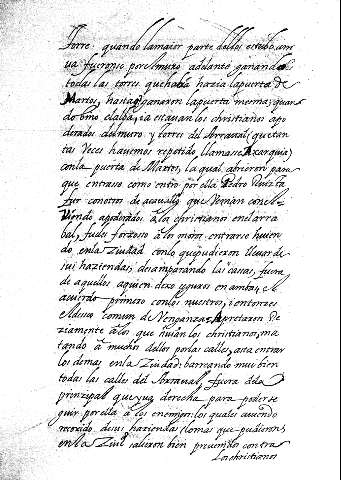 Torre: quando la maior parte dellos estubo arri
ua fueronse por el muro adelante ganando
todas las torres que había hazia la puerta de
Martos, hasta q ganaron la puerta mesma, quan
do vino el alba, ia estauan los christianos apo
derados del muro y torres del Arraual (que tan
tas veces hauemos repetido, llamarse Axarquia)
con la puerta de Martos, la qual abrieron para
que entrasse como entro por ella Pedro Ruiz ta
fur con otros de acauallo que venian con el.
Viendo apoderados a los christianos en el arra
bal, fueles forzoso a los moros, entrarse huien
do en la Ziudad con lo que pudieron lleuar de
sus haziendas, desamparando las casas, fuera
de aquellos a quien dexo yguares en ambas, el
acuerdo primero con los nuestros, i entonces
el deseo comun de Venganza: Apretaron re
ziamente a los que huian los christianos, ma
tando a muchos dellos por las calles, asta entrar
los demas en la Ziudad: barreando mui bien
todas las calles del Arraual, fuera de la
principal que yua derecha para poder se
guir por ella a los enemigos: los quales auiendo
recoxido de sus haziendas lo mas que pudieron,
en la Ziud salieron bien preuenidos contra
Los christianos